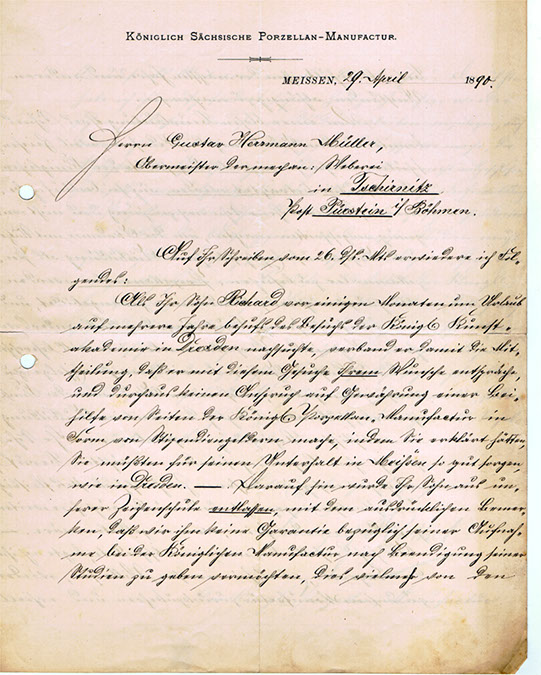 Königlich Sächsische Porzellan-Manufactur.
Meissen, 29. April 1890.
Herrn Gustav Herrmann Müller,
Obermeister der mechan: Weberei
in Tschirnitz
Post Pürstein i/ Böhmen.
Auf Ihr Schreiben vom 26. ds. Mts erwiedere ich Fol-
gendes:
Als Ihr Sohn Richard vor einigen Monaten um Urlaub
auf mehrere Jahre behufs des Besuchs der Königl Kunst-
akademie in Dresden nachsuchte, verband er damit die Mit-
theilung, daß er mit diesem Gesuche Ihrem Wunsche entspräche,
und durchaus keinen Anspruch auf Gewährung einer Bei-
hilfe von Seiten der Königl Porzellan-Manufactur in
Form von Stipendiengeldern mache, indem Sie erklärt hätten,
Sie müßten für seinen Unterhalt in Meißen so gut sorgen
wie in Dresden. — Darauf hin wurde Ihr Sohn aus un-
serer Zeichenschule entlassen, mit dem ausdrücklichen Bemer-
ken, daß wir ihm keine Garantie bezüglich seiner Aufnah-
me bei der Königlichen Manufactur nach Beendigung seiner
Studien zu geben vermöchten, dies vielmehr von den